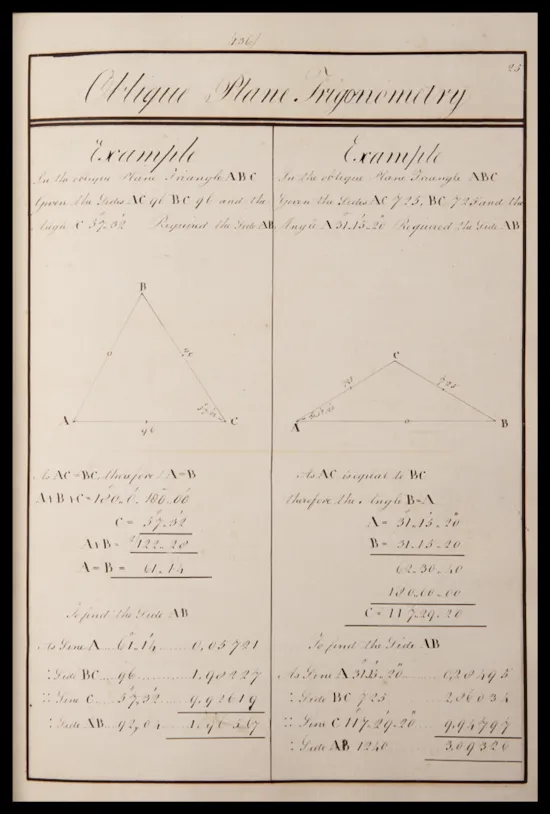 (136)
25
Oblique Plane Trigonometry
Example
In the oblique Plane Triangle ABC
Given the Sides AC 96 BC 96 and the
Angle C 57..32 Required the Side AB
B
o
96
57.32
A
C
96
As AC = BC, therefore A = B
A+B+C = 180..0, 180..00
C = 57..32
A+B = 2)122..28
A = B = 61..14
To find the Side AB
As Sine A....61..14......0,05721
: Side BC....96..........1,98227
:: Sine C....57,32.......9,92619
: Side AB...92,04........1,96567
Example
In the oblique Plane Triangle ABC
Given the Sides AC 725, BC 725 and the
Angle A 31..15..20 Required the Side AB
C
725
A
o
B
As AC is equal to BC
therefore the Angle B = A
A = 31..15..20
B = 31..15..20
62..30..40
180..00..00
C = 117..29..20
To find the Side AB
As Sine A 31..15..20......0,28495
: Side BC 725......2,86034
:: Sine C 117..29..20....9,94797
: Side AB 1240......3,09326